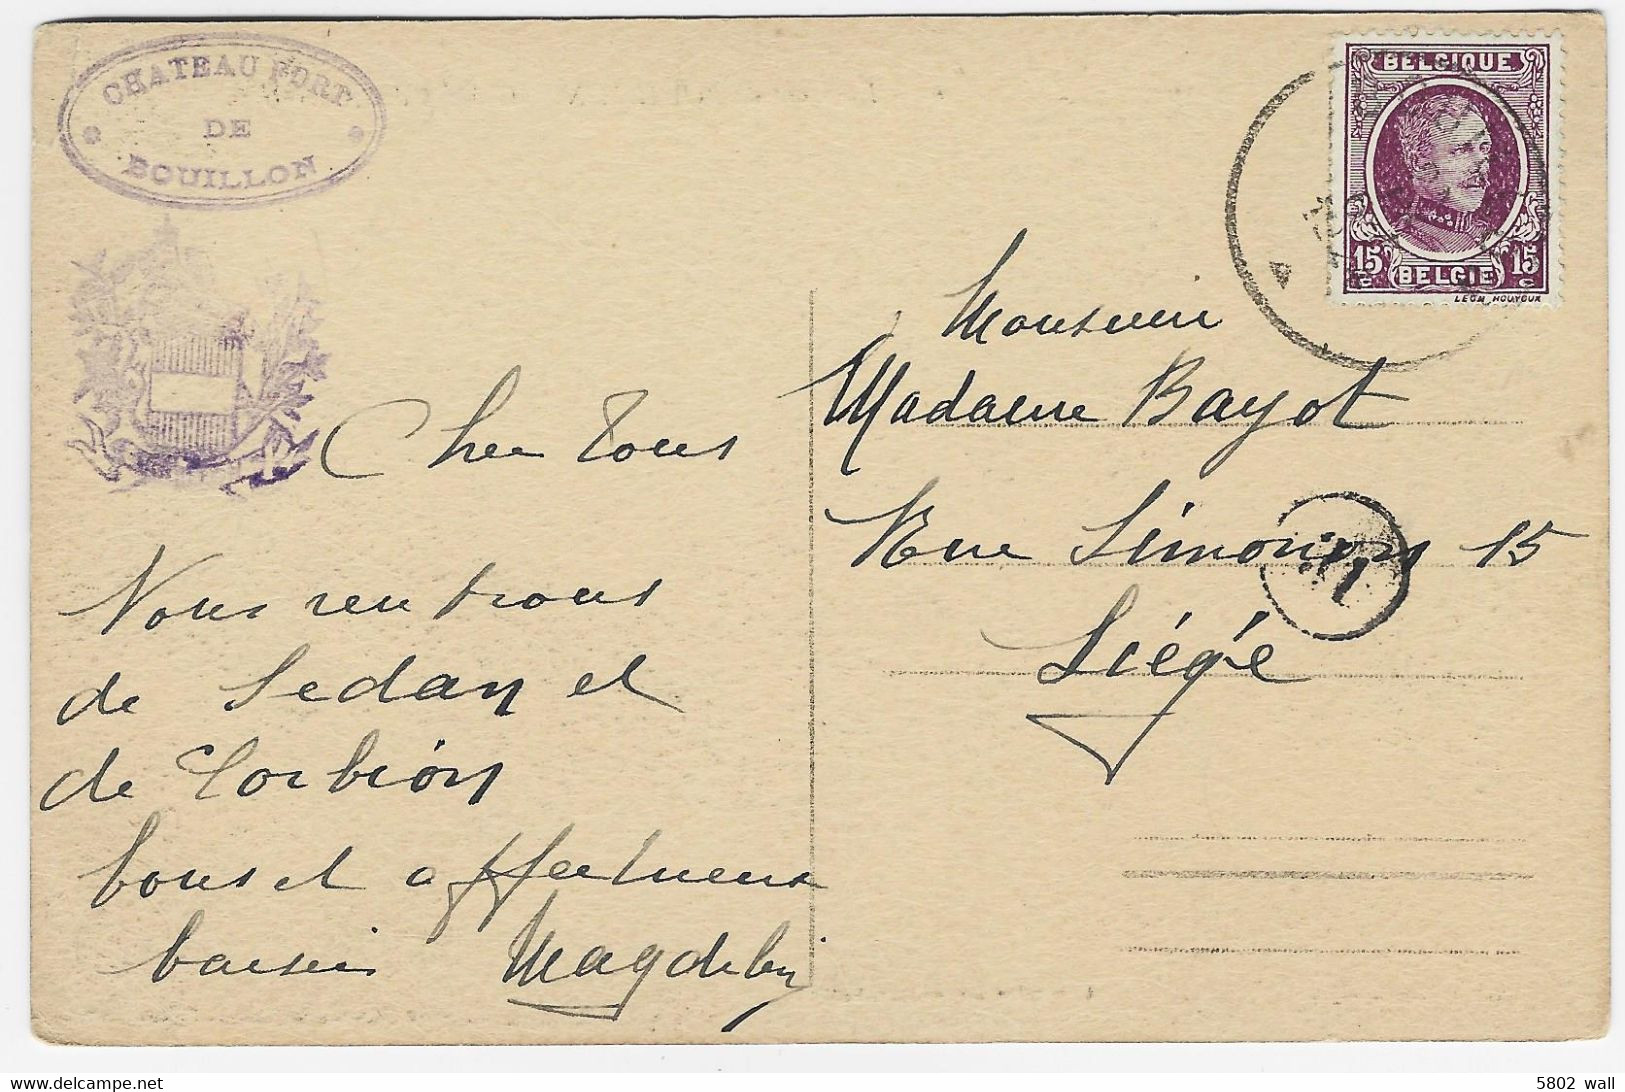 CHATEAU FORT
DE
BOUILLON
BELGIQUE
15 BELGIE 15
LEON HOUYOUX
Monsieur
Madame Bayot
Rue Limonons 15
Liégé
Cher tous
Nous rentrons
de Sedan et
de Corbion
bons et affectueux
baisers
5802 wall